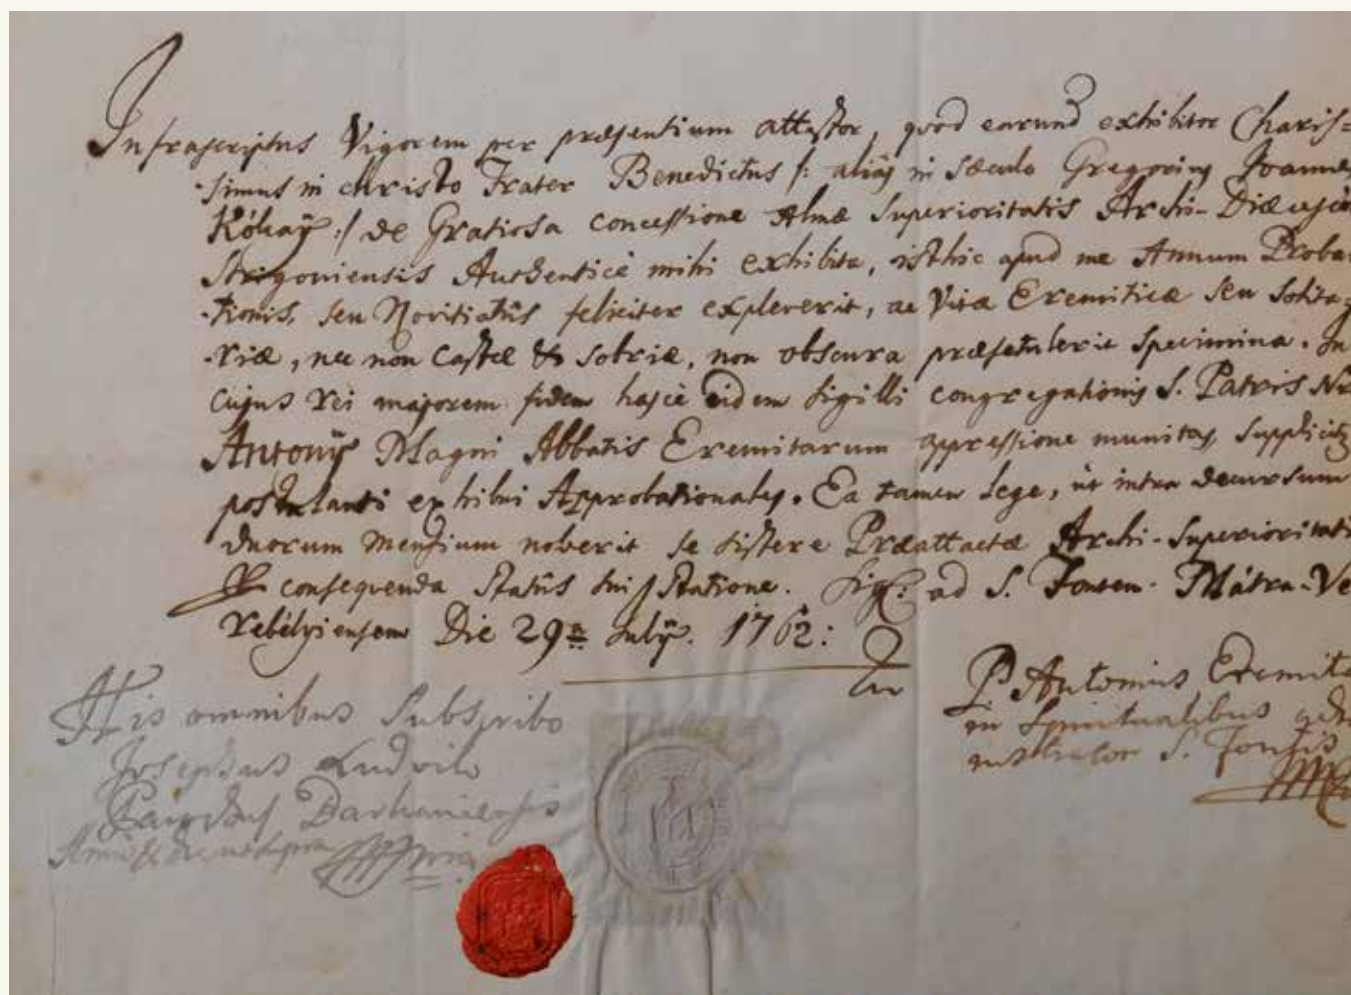 Infrascriptus Vigorem per præsentium attestor, quod earund exhibitor Charis=
simus in christo Frater Benedictus /: aliàs in Sæculo Gregorius Joannes
Kókaÿ :/ de Gratiosa concessione Almæ Superioritatis Archi-Diæcesis
Strigoniensis Authenticè mihi exhibita, isthic apud me Annum Proba-
tionis, seu Novitiatûs feliciter expleverit, ac Vitæ Eremiticæ seu Solita=
riæ, nec non Castæ & Sobriæ, non obscura præsetulerit Specimina. In
cujus rei majorem fidem hasce eidem Sigilli congregationis S. Patris
Antonÿ Magni Abbatis Eremitarum appressione munitas, Suppliciter
postulanti exhibui Approbationales. Ea tamen Lege, ut intra decursum
duorum Mensium noverit se sistere Præattactæ Archi-Superioritati
consequenda Statûs sui Statione. Sig: ad S. Fontem Mátra-Ve
rebélyiensem Die 29a Julÿ. 1762:
His omnibus Subscribo
Josephus Ludvik
P Antonius Eremita
in Spiritualibus
S. Fontis